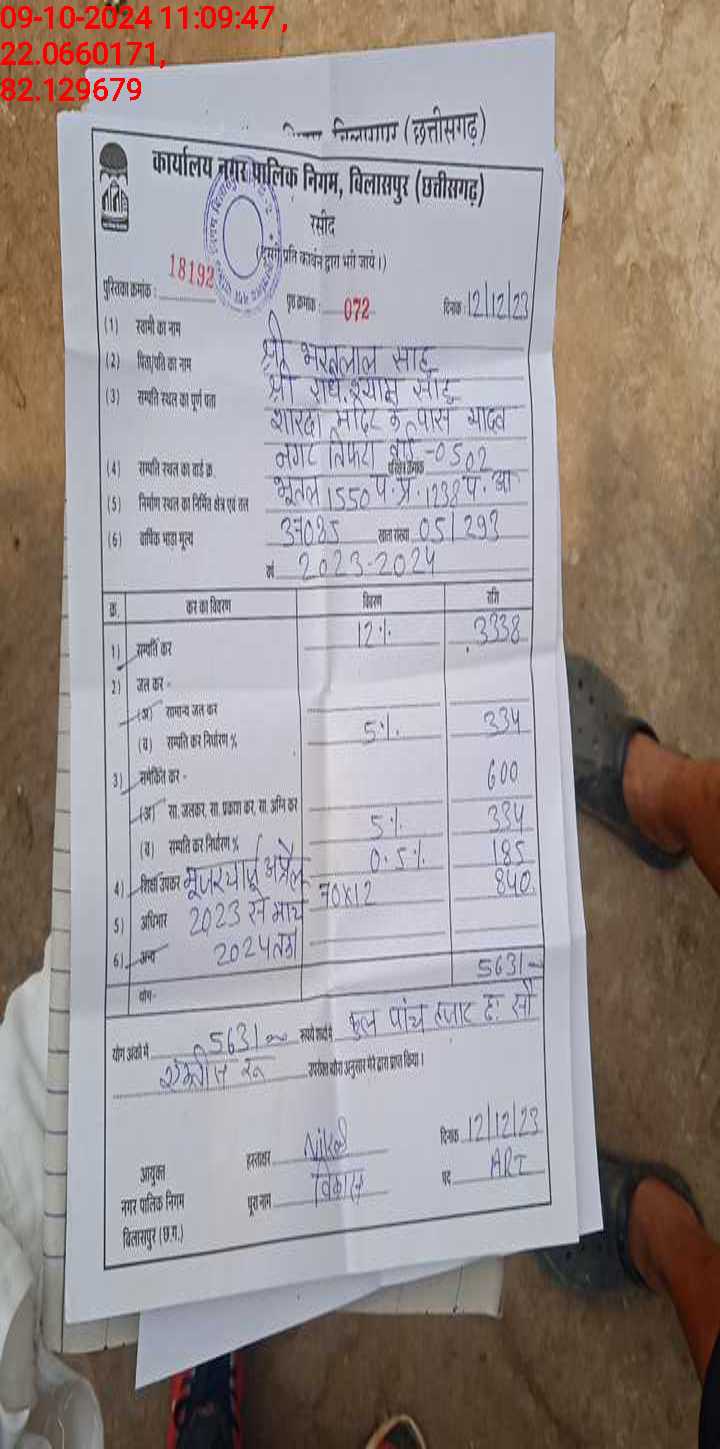 09-10-2024 11:09:47 ,
22.0660171,
82.129679
(छत्तीसगढ़)
कार्यालय नगर पालिक निगम, विलासपुर (छत्तीसगढ़)
रसीद
(दूसरी प्रति कार्बन द्वारा भरी जाये।)
पुस्तिका क्रमांक : 18192 पृष्ठ क्रमांक : 072 दिनांक : 12/12/23
(1) स्वामी का नाम श्री भरतलाल साहू
(2) पिता/पति का नाम श्री राधेश्याम साहू
(3) सम्पत्ति स्थल का पूर्ण पता शारदा मंदिर के पास यादव
नगर तिफरा वार्ड-0502
(4) सम्पत्ति स्थल का वार्ड क्र.
(5) निर्माण स्थल का निर्मित क्षेत्र एवं तल भूतल 1550 प.प्र. 1238 प. आ
(6) वार्षिक भाड़ा मूल्य 37085 खाता संख्या 051293
वर्ष 2023-2024
क्र. कर का विवरण विवरण राशि
1) सम्पत्ति कर 12%. 3338
2) जल कर -
(अ) सामान्य जल कर
(ब) सम्पति कर निर्धारण % 5%. 334
3) समेकित कर - 600
(अ) सा. जलकर, सा. प्रकाश कर, सा. अग्नि कर
(ब) सम्पति कर निर्धारण % 5%. 334
4) शिक्षा उपकर 0.5%. 185
यूजर चार्ज अप्रैल 70x12 840
5) अधिभार 2023 से मार्च
6) अन्य 2024 तक
योग- 5631
योग अंकों में 5631 रूपये शब्दों में कुल पांच हजार छः सौ
इकतीस रू उपरोक्त योग अनुसार मेरे द्वारा प्राप्त किया।
दिनांक 12/12/23
आयुक्त हस्ताक्षर पद ARI
नगर पालिक निगम पूरा नाम विकास
बिलासपुर (छ.ग.)